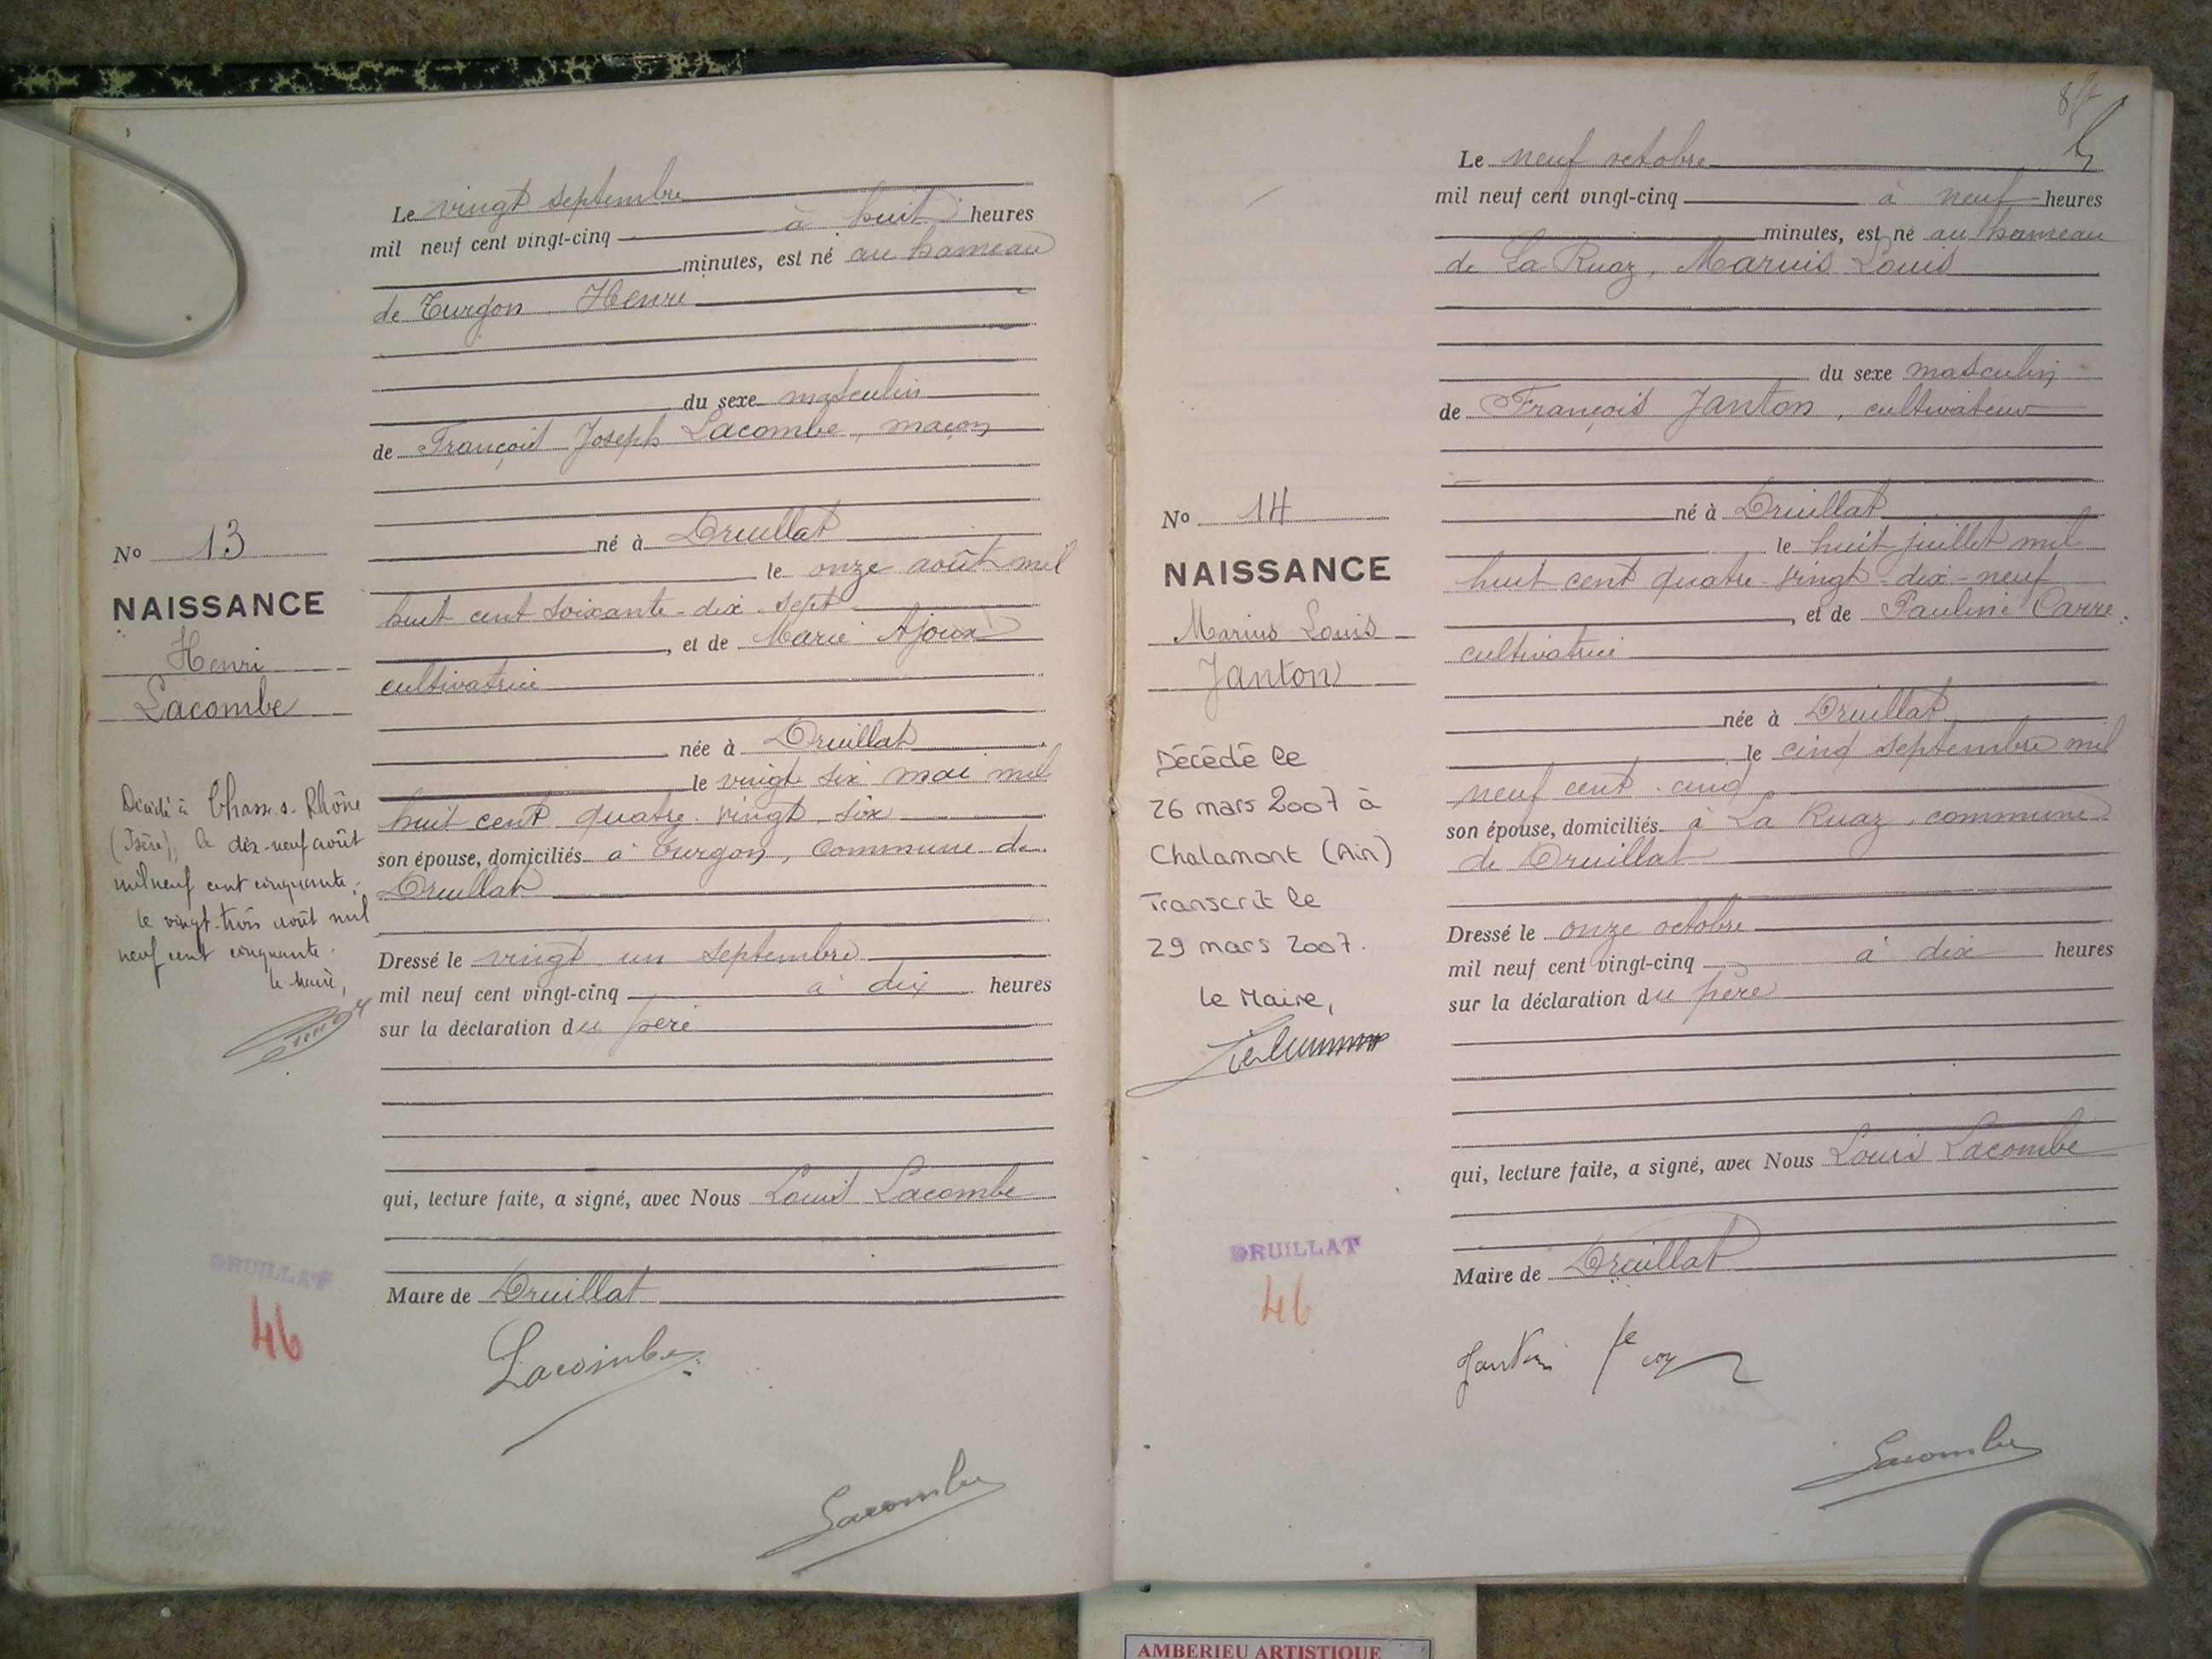 Le vingt septembre
mil neuf cent vingt-cinq à huit heures
minutes, est né au hameau
de Turgon Henri
du sexe masculin
de François Joseph Lacombe, maçon
né à Druillat
le onze août mil
huit cent soixante-dix-sept
, et de Marie Ajoux
cultivatrice
née à Druillat
le vingt six mai mil
huit cent quatre-vingt-six
son épouse, domiciliés à Turgon, commune de
Druillat
Dressé le vingt un septembre
mil neuf cent vingt-cinq à dix heures
sur la déclaration du père
qui, lecture faite, a signé, avec Nous Louis Lacombe
Maire de Druillat
Lacombe
Lacombe
No 13
NAISSANCE
Henri
Lacombe
Décédé à Chasse s. Rhône
(Isère), le dix-neuf août
mil neuf cent cinquante.
le vingt-trois août mil
neuf cent cinquante.
le Maire,
DRUILLAT
46
Le neuf octobre
mil neuf cent vingt-cinq à neuf heures
minutes, est né au hameau
de La Ruaz, Marius Louis
du sexe masculin
de François Janton, cultivateur
né à Druillat
le huit juillet mil
huit cent quatre-vingt-dix-neuf
, et de Pauline Carre
cultivatrice
née à Druillat
le cinq septembre mil
neuf cent cinq
son épouse, domiciliés à La Ruaz, commune
de Druillat
Dressé le onze octobre
mil neuf cent vingt-cinq à dix heures
sur la déclaration du père
qui, lecture faite, a signé, avec Nous Louis Lacombe
Maire de Druillat
Janton
Lacombe
No 14
NAISSANCE
Marius Louis
Janton
Décédé le
26 mars 2007 à
Chalamont (Ain)
Transcrit le
29 mars 2007.
Le Maire,
DRUILLAT
46
AMBERIEU ARTISTIQUE